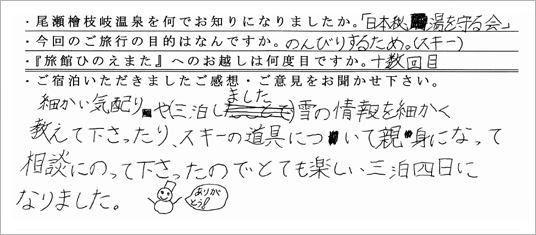 ・尾瀬檜枝岐温泉を何でお知りになりましたか。「日本秘湯を守る会」
・今回のご旅行の目的はなんですか。のんびりするため。(スキー)
・『旅館ひのえまた』へのお越しは何度目ですか。十数回目
・ご宿泊いただきましたご感想・ご意見をお聞かせ下さい。
細かい気配りや、三泊しました 雪の情報を細かく
教えて下さったり、スキーの道具について親身になって
相談にのって下さったのでとても楽しい三泊四日に
なりました。 ありがとう!